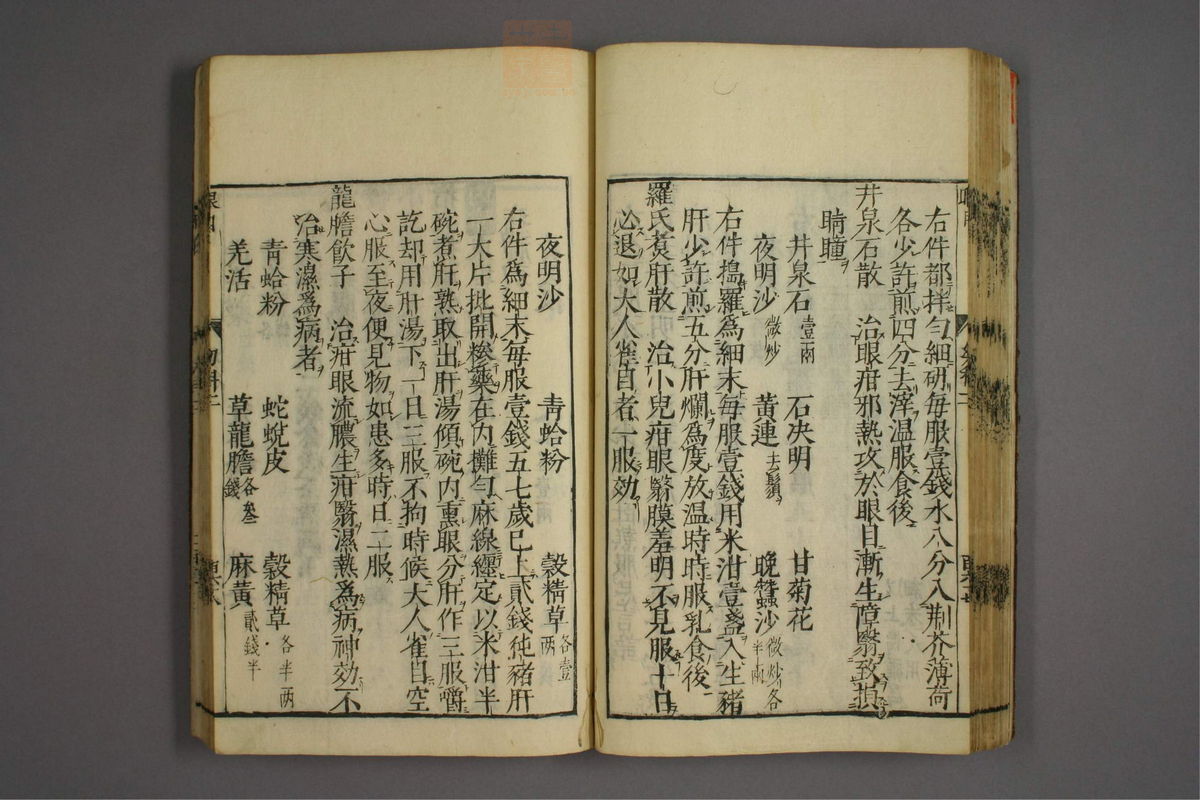 右件都拌匀細研每服壹錢水八分入荆芥薄荷
各少許煎四分去滓温服食後
井泉石散 治眼疳邪熱攻於眼目漸生障翳致損
睛瞳
井泉石壹兩 石决明 甘菊花
夜明沙微炒 黄連去鬚 晚蠶沙微炒各半兩
右件搗羅爲細末每服壹錢用米泔壹盞入生豬
肝少許煎五分肝爛爲度放温時時服乳食後
羅氏煑肝散 治小兒疳眼翳膜羞明不見服十日
必退如大人雀目者一服効
夜明沙 青蛤粉 穀精草各壹两
右件爲細末每服壹錢五七歲已上貳錢㹠豬肝
一大片批開摻藥在内攤匀麻線纏定以米泔半
碗煮肝熟取出肝湯傾碗内熏眼分肝作三服嚼
訖却用肝湯下一日三服不拘時候大人雀目空
心服至夜便見物如患多時日二服
龍膽飲子 治疳眼流膿生疳翳濕熱爲病神効不
治寒濕爲病者
青蛤粉 蛇蛻皮 穀精草各半两
羌活 草龍膽各叁錢 麻黄貳錢半